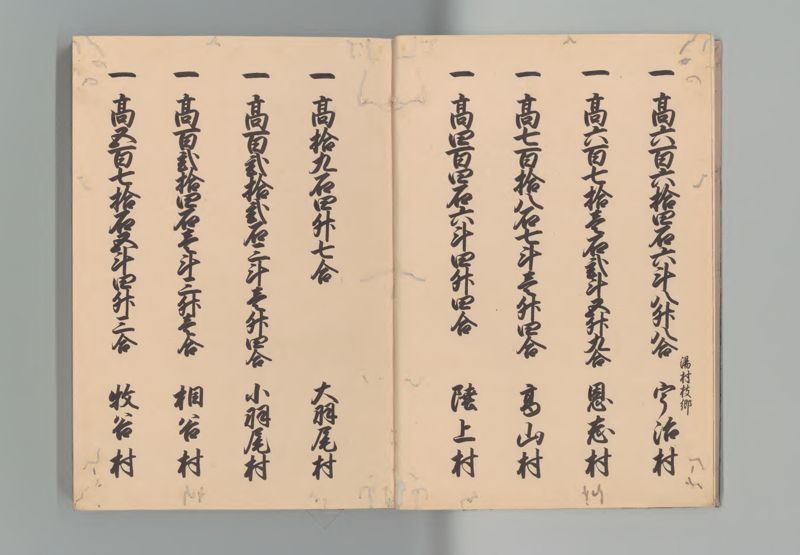 湯村枝郷
一 高六百六拾四石六斗八升八合 宇治村
一 高六百七拾壱石弐斗五升九合 恩志村
一 高七百拾八石七斗壱升四合 高山村
一 高四百四石六斗四升四合 陸上村
一 高拾九石四升七合 大羽尾村
一 高百弐拾弐石三斗壱升四合 小羽尾村
一 高百弐拾四石壱斗三升壱合 相谷村
一 高五百七拾石五斗四升三合 牧谷村